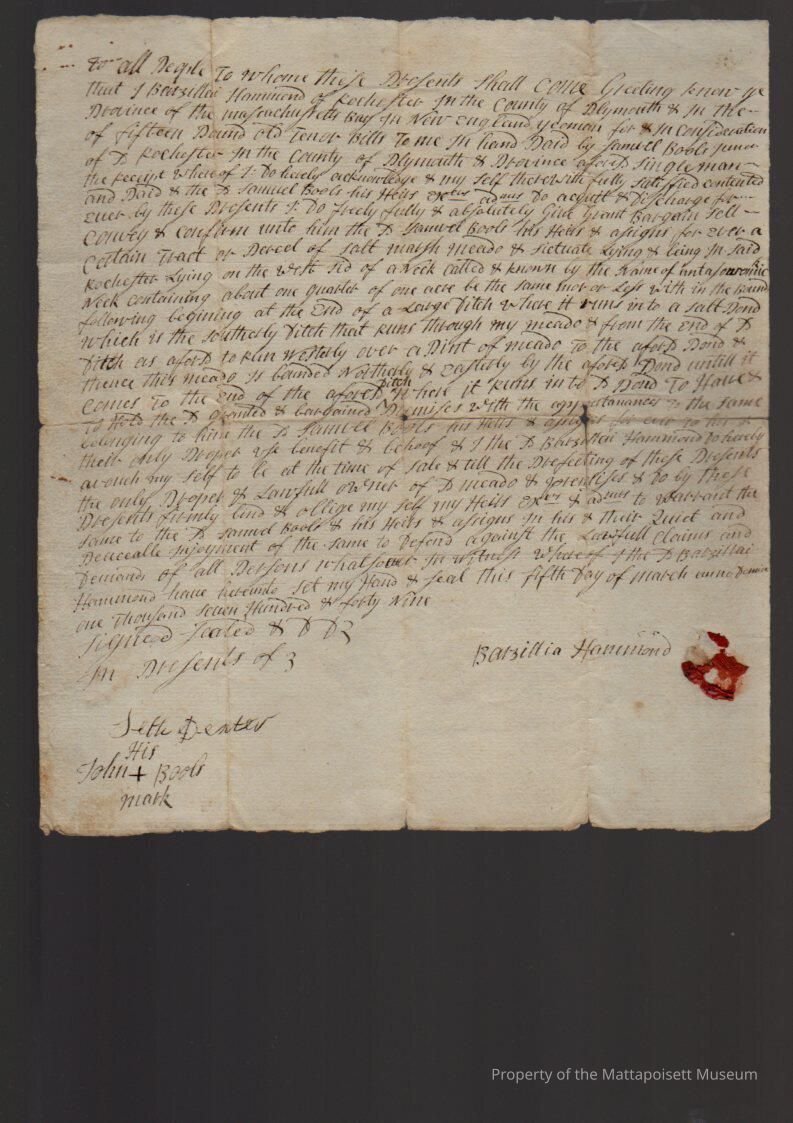 To all People To whome these Presents shall Come Greeting know ye
that I Barzillai Hammond of Rochester In the County of Plymouth & In the
Province of the massachusetts Bay in New England yeoman for & In Consideration
of fifteen Pound old Tenor Bills To me In hand Paid by Samuel Bools Juner
of sd Rochester In the County of Plymouth & Province aforesd singleman
the Receipt whereof I Do hereby acknowledge & my self therewith fully satisfied contented
and Paid & the sd Samuel Bools his Heirs Exetrs admrs Do acquitt & Discharge for
ever by these Presents I Do freely fully & absolutely Give Grant Bargain sell
Convey & Confirm unto him the sd Samuel Bools his Heirs & asigns for ever a
Certain Tract or Percel of salt marsh meado & sictuate Lying & being In said
Rochester Lying on the west sid of a Neck Called & known by the Name of
Neck Containing about one quarter of one acre be the same mor or Less with in the Bounds
following begining at the End of a Large Ditch where it runs in to a salt Pond
which is the southerly Ditch that Runs through my meado & from the End of sd
Ditch as aforsd to Run westerly over a Pint of meado To the aforsd Pond &
thence this meado Is bounded Northerly & Easterly by the aforsd Pond untill it
Comes To the End of the aforesd Ditch where it Runs in to sd Pond To Have &
To Hold the sd granted & bargained Premises with the appurtanances to the same
belonging to him the sd Samuel Bools his Heirs & asigns for ever to his &
their only Proper use benefit & behoof & I the sd Barzillai Hammond Do hereby
avouch my self to be at the time of sale & till the Perfecting of these Presents
the only Proper & Lawfull owner of sd meado & Premises & Do by these
Presents firmly bind & oblige my self my Heirs Exrs & admrs to warrant the
same to the sd Samuel Bools & his Heirs & asigns In his & their Quiet and
Peaceable injoyment of the same to Defend against the Lawfull Claims and
Demands of all Persons whatsoever In witness whereof I the sd Barzillai
Hammond have hereunto set my Hand & seal this fifth Day of march anno Domini
one thousand seven Hundred & forty Nine
Signed Sealed & DD
In Presents of
Barzillia Hammond
Seth Dexter
His
John + Bools
mark
Property of the Mattapoisett Museum